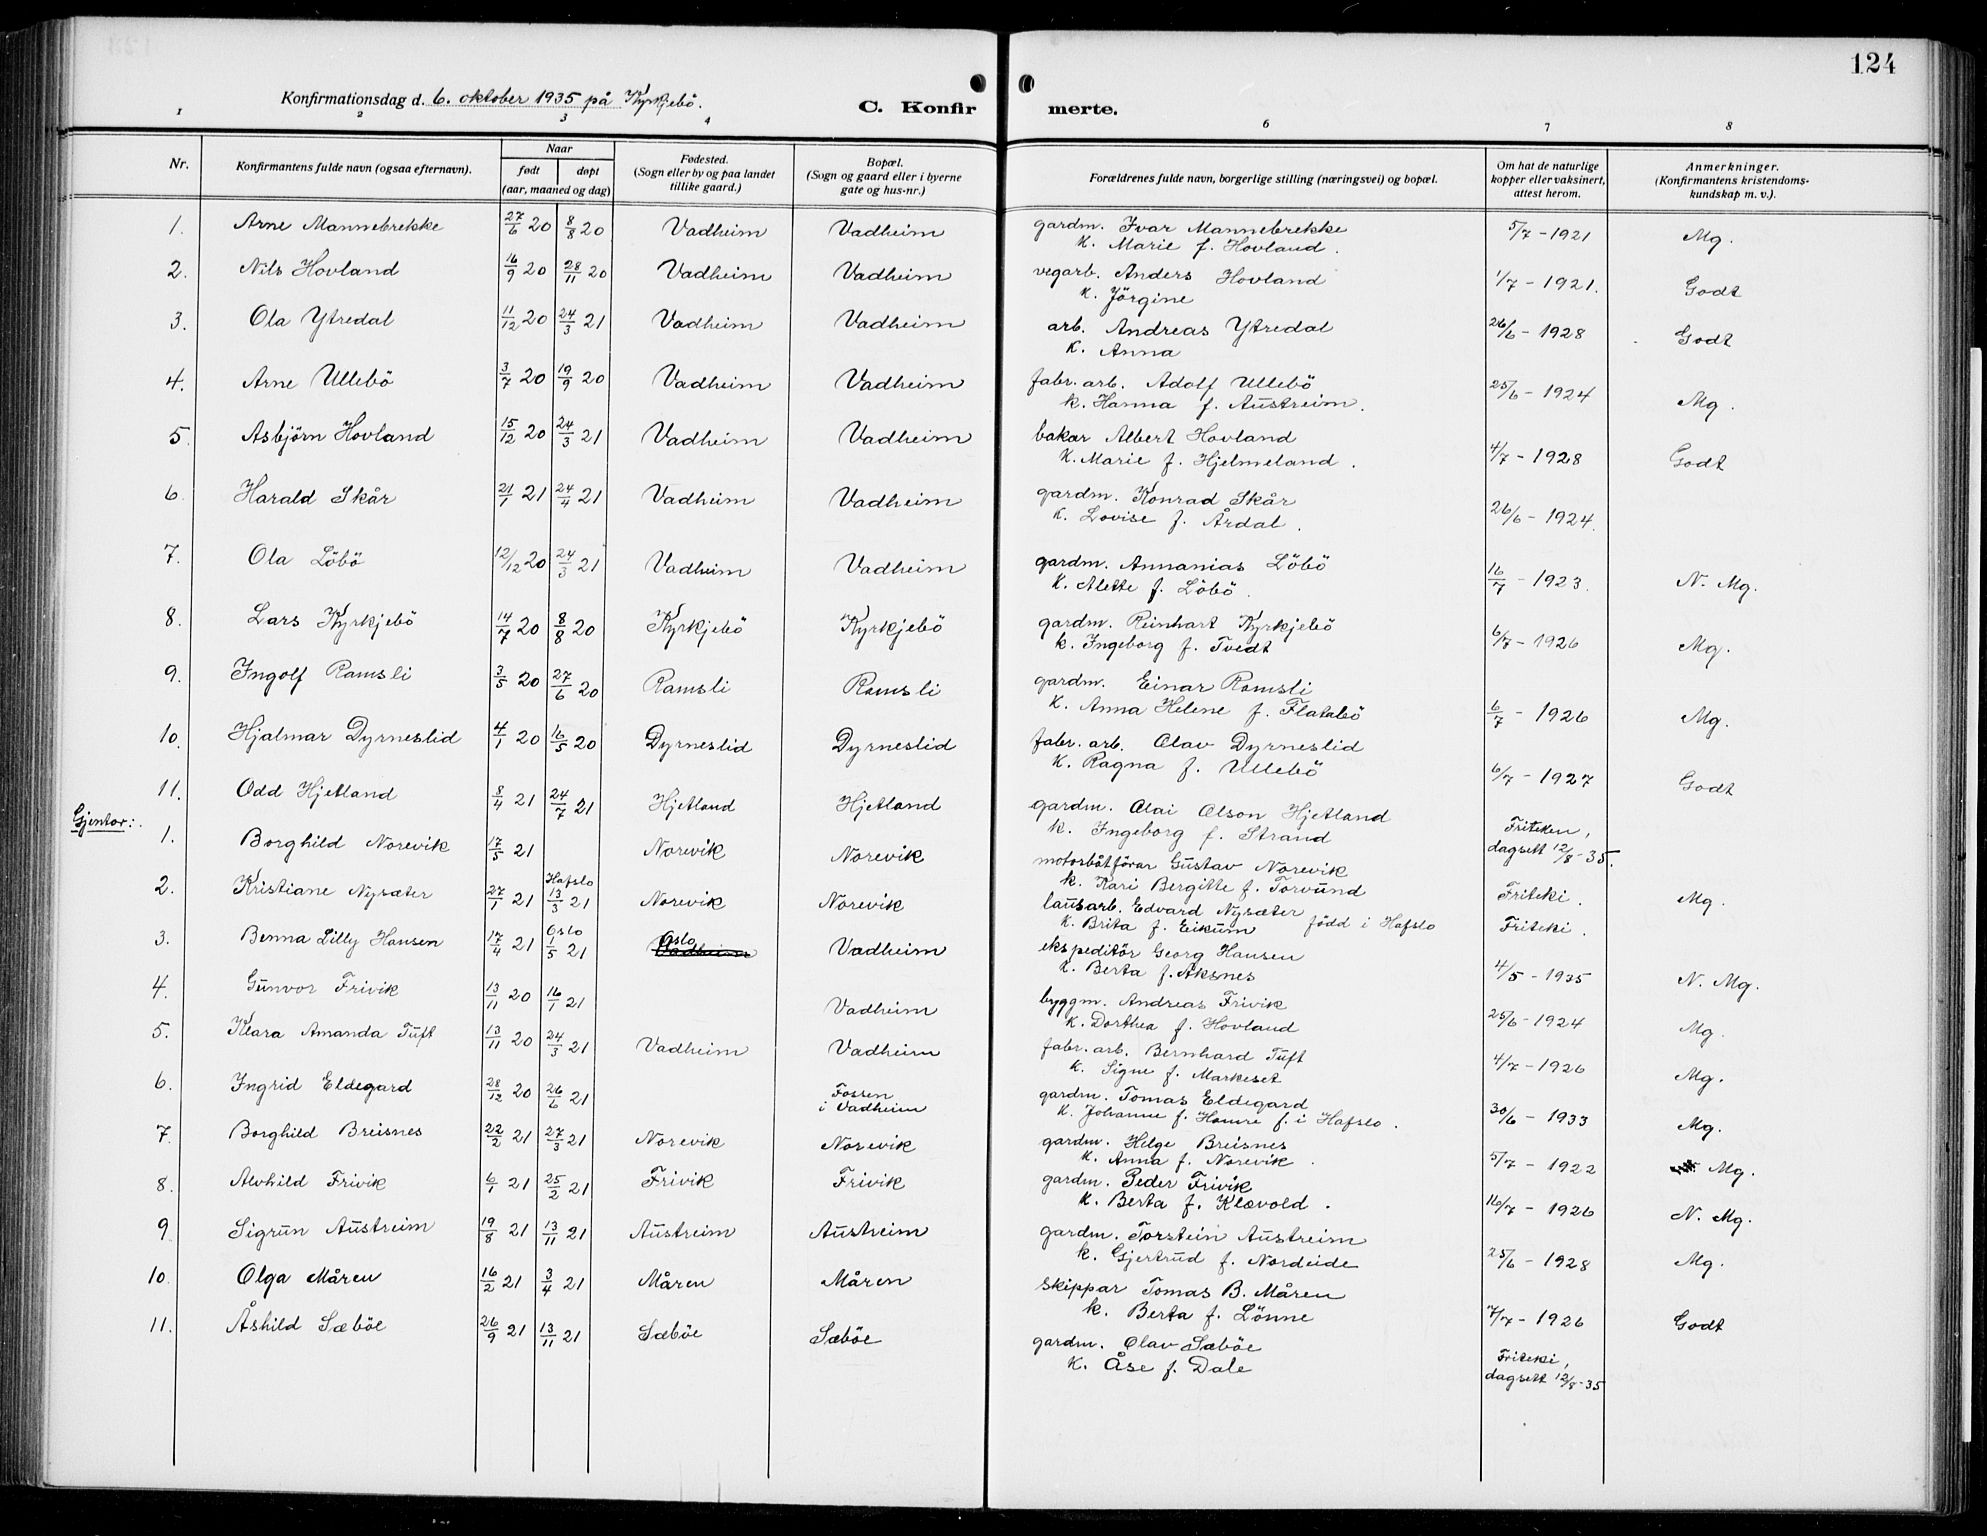 124
Konfirmationsdag d. 6. oktober 1935 på Kyrkjebö.
C. Konfirmerte.
1 2 3 4 6 7 8
Nr. | Konfirmantens fulde navn (ogsaa efternavn). | Naar født døpt (aar, maaned og dag) | Fødested. (Sogn eller by og paa landet tillike gaard.) | Bopæl. (Sogn og gaard eller i byerne gate og hus-nr.) | Forældrenes fulde navn, borgerlige stilling (næringsvei) og bopæl. | Om hat de naturlige kopper eller vaksinert, attest herom. | Anmerkninger. (Konfirmantens kristendoms-kundskap m. v.).
1. Arne Mannebrekke 27/6 20 8/8 20 Vadheim Vadheim gardm. Ivar Mannebrekke 5/7 - 1921 Mg.
k. Marie f. Hovland.
2. Nils Hovland 16/9 20 28/11 20 Vadheim Vadheim vegarb. Anders Hovland 1/7 - 1921. Godt
k. Jörgine
3. Ola Ytredal 11/12 20 24/3 21 Vadheim Vadheim arb. Andreas Ytredal 26/6 - 1928 Godt
k. Anna
4. Arne Ullebö 3/7 20 19/9 20 Vadheim Vadheim fabr. arb. Adolf Ullebö 25/6 - 1924 Mg.
k. Hanna f. Austreim.
5. Asbjörn Hovland 15/12 20 24/3 21 Vadheim Vadheim bakar Albert Hovland 4/7 - 1928 Godt
k. Marie f. Hjelmeland.
6. Harald Skår 21/1 21 24/4 21 Vadheim Vadheim gardm. Konrad Skår 26/6 - 1924.
k. Lovise f. Årdal.
7. Ola Löbö 12/12 20 24/3 21 Vadheim Vadheim gardm. Annanias Löbö 16/7 - 1923. N. Mg.
k. Alette f. Löbö.
8. Lars Kyrkjebö 14/7 20 8/8 20 Kyrkjebö Kyrkjebö gardm. Reinhart Kyrkjebö 6/7 - 1926 Mg.
k. Ingeborg f. Tvedt
9. Ingolf Ramsli 3/5 20 27/6 20 Ramsli Ramsli gardm. Einar Ramsli 6/7 - 1926 Mg.
k. Anna Helene f. Flatabö
10. Hjalmar Dyrneslid 4/1 20 16/5 20 Dyrneslid Dyrneslid fabr. arb. Olav Dyrneslid 6/7 - 1927 Godt
k. Ragna f. Ullebö
11. Odd Hjetland 8/4 21 24/7 21 Hjetland Hjetland gardm. Olai Olson Hjetland Friteken, dagsett 12/8-35.
k. Ingeborg f. Strand
Gjentor:
1. Borghild Norevik 17/5 21 Norevik Norevik motorbåtförar Gustav Norevik Friteki. Mg.
k. Kari Bergitte f. Torvund
2. Kristiane Nysæter 27/1 21 Hafslo 13/3 21 Norevik Norevik lausarb. Edvard Nysæter Friteki.
k. Brita f. Eikum född i Hafslo
3. Benna Lilly Hansen 17/4 21 Oslo 1/5 21 Oslo Vadheim ekspeditör Georg Hansen 4/5 - 1935 N. Mg.
k. Berta f. Aksnes
4. Gunvor Frivik 13/11 20 16/1 21 Vadheim byggm. Andreas Frivik 25/6 - 1924 Mg.
k. Dorthea f. Hovland
5. Klara Amanda Tuft 13/11 20 24/3 21 Vadheim Vadheim fabr. arb. Bernhard Tuft 4/7 - 1926 Mg.
k. Signe f. Markeset
6. Ingrid Eldegard 28/12 20 26/6 21 Fossen i Vadheim gardm. Tomas Eldegard 30/6 - 1933 Mg.
k. Johanne f. Hamre f. i Hafslo.
7. Borghild Breisnes 22/2 21 27/3 21 Norevik Norevik gardm. Helge Breisnes 5/7 - 1922 Mg.
k. Anna f. Norevik.
8. Alvhild Frivik 6/1 21 25/2 21 Frivik Frivik gardm. Peder Frivik 16/7 - 1926 N. Mg.
k. Berta f. Klævold.
9 Sigrun Austreim 19/8 21 13/11 21 Austreim Austreim gardm. Torstein Austreim 25/6 - 1928 Mg.
k. Gjertrud f. Nordeide
10. Olga Måren 16/2 21 3/4 21 Måren Måren skippar Tomas B. Måren 7/7 - 1926 Godt
k. Berta f. Lönne
11. Åshild Sæböe 26/9 21 13/11 21 Sæböe Sæböe gardm. Olav Sæböe Friteki, dagsett 12/8-35
k. Åse f. Dale